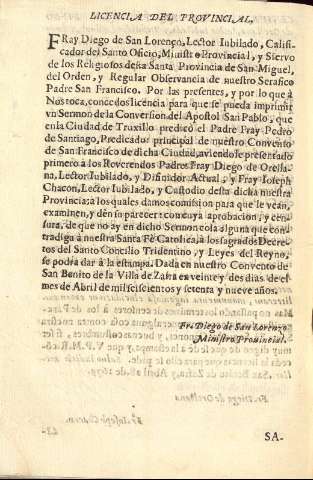 LICENCIA DEL PROVINCIAL,
FRay Diego de San Lorenço, Lector Iubilado, Califi-
cador del Santo Oficio, Ministro Provincial, y Siervo
de los Religiosos desta Santa Provincia de San Miguel,
del Orden, y Regular Observancia de nuestro Serafico
Padre San Francisco. Por las presentes, y por lo que à
Nos toca, concedos licencia para que se pueda imprimir
vn Sermon de la Conversion del Apostol San Pablo, que
en la Ciudad de Truxillo predicò el Padre Fray Pedro
de Santiago, Predicador principal de nuestro Convento
de San Francisco de dicha Ciudad, aviendose presentado
primero à los Reverendos Padres Fray Diego de Orella-
na, Lector Iubilado, y Difinidor Actual, y Fray Ioseph
Chacon, Lector Iubilado, y Custodio desta dicha nuestra
Provincia: a los quales damos comission para que le vean,
examinen, y dèn su parecer: con cuya aprobacion, y cen-
sura, de que no ay en dicho Sermon cosa alguna que con-
tradiga à nuestra Santa Fè Catolica, à los sagrados Decre-
tos del Santo Concilio Tridentino, y Leyes del Reyno,
se podra dàr à la estampa. Dada en nuestro Convento de
San Benito de la Villa de Zafra en veinte y dos dias de el
mes de Abril de mil seiscientos y setenta y nueve años.
Fr. Diego de San Lorenço
Ministro Provincial.
SA-